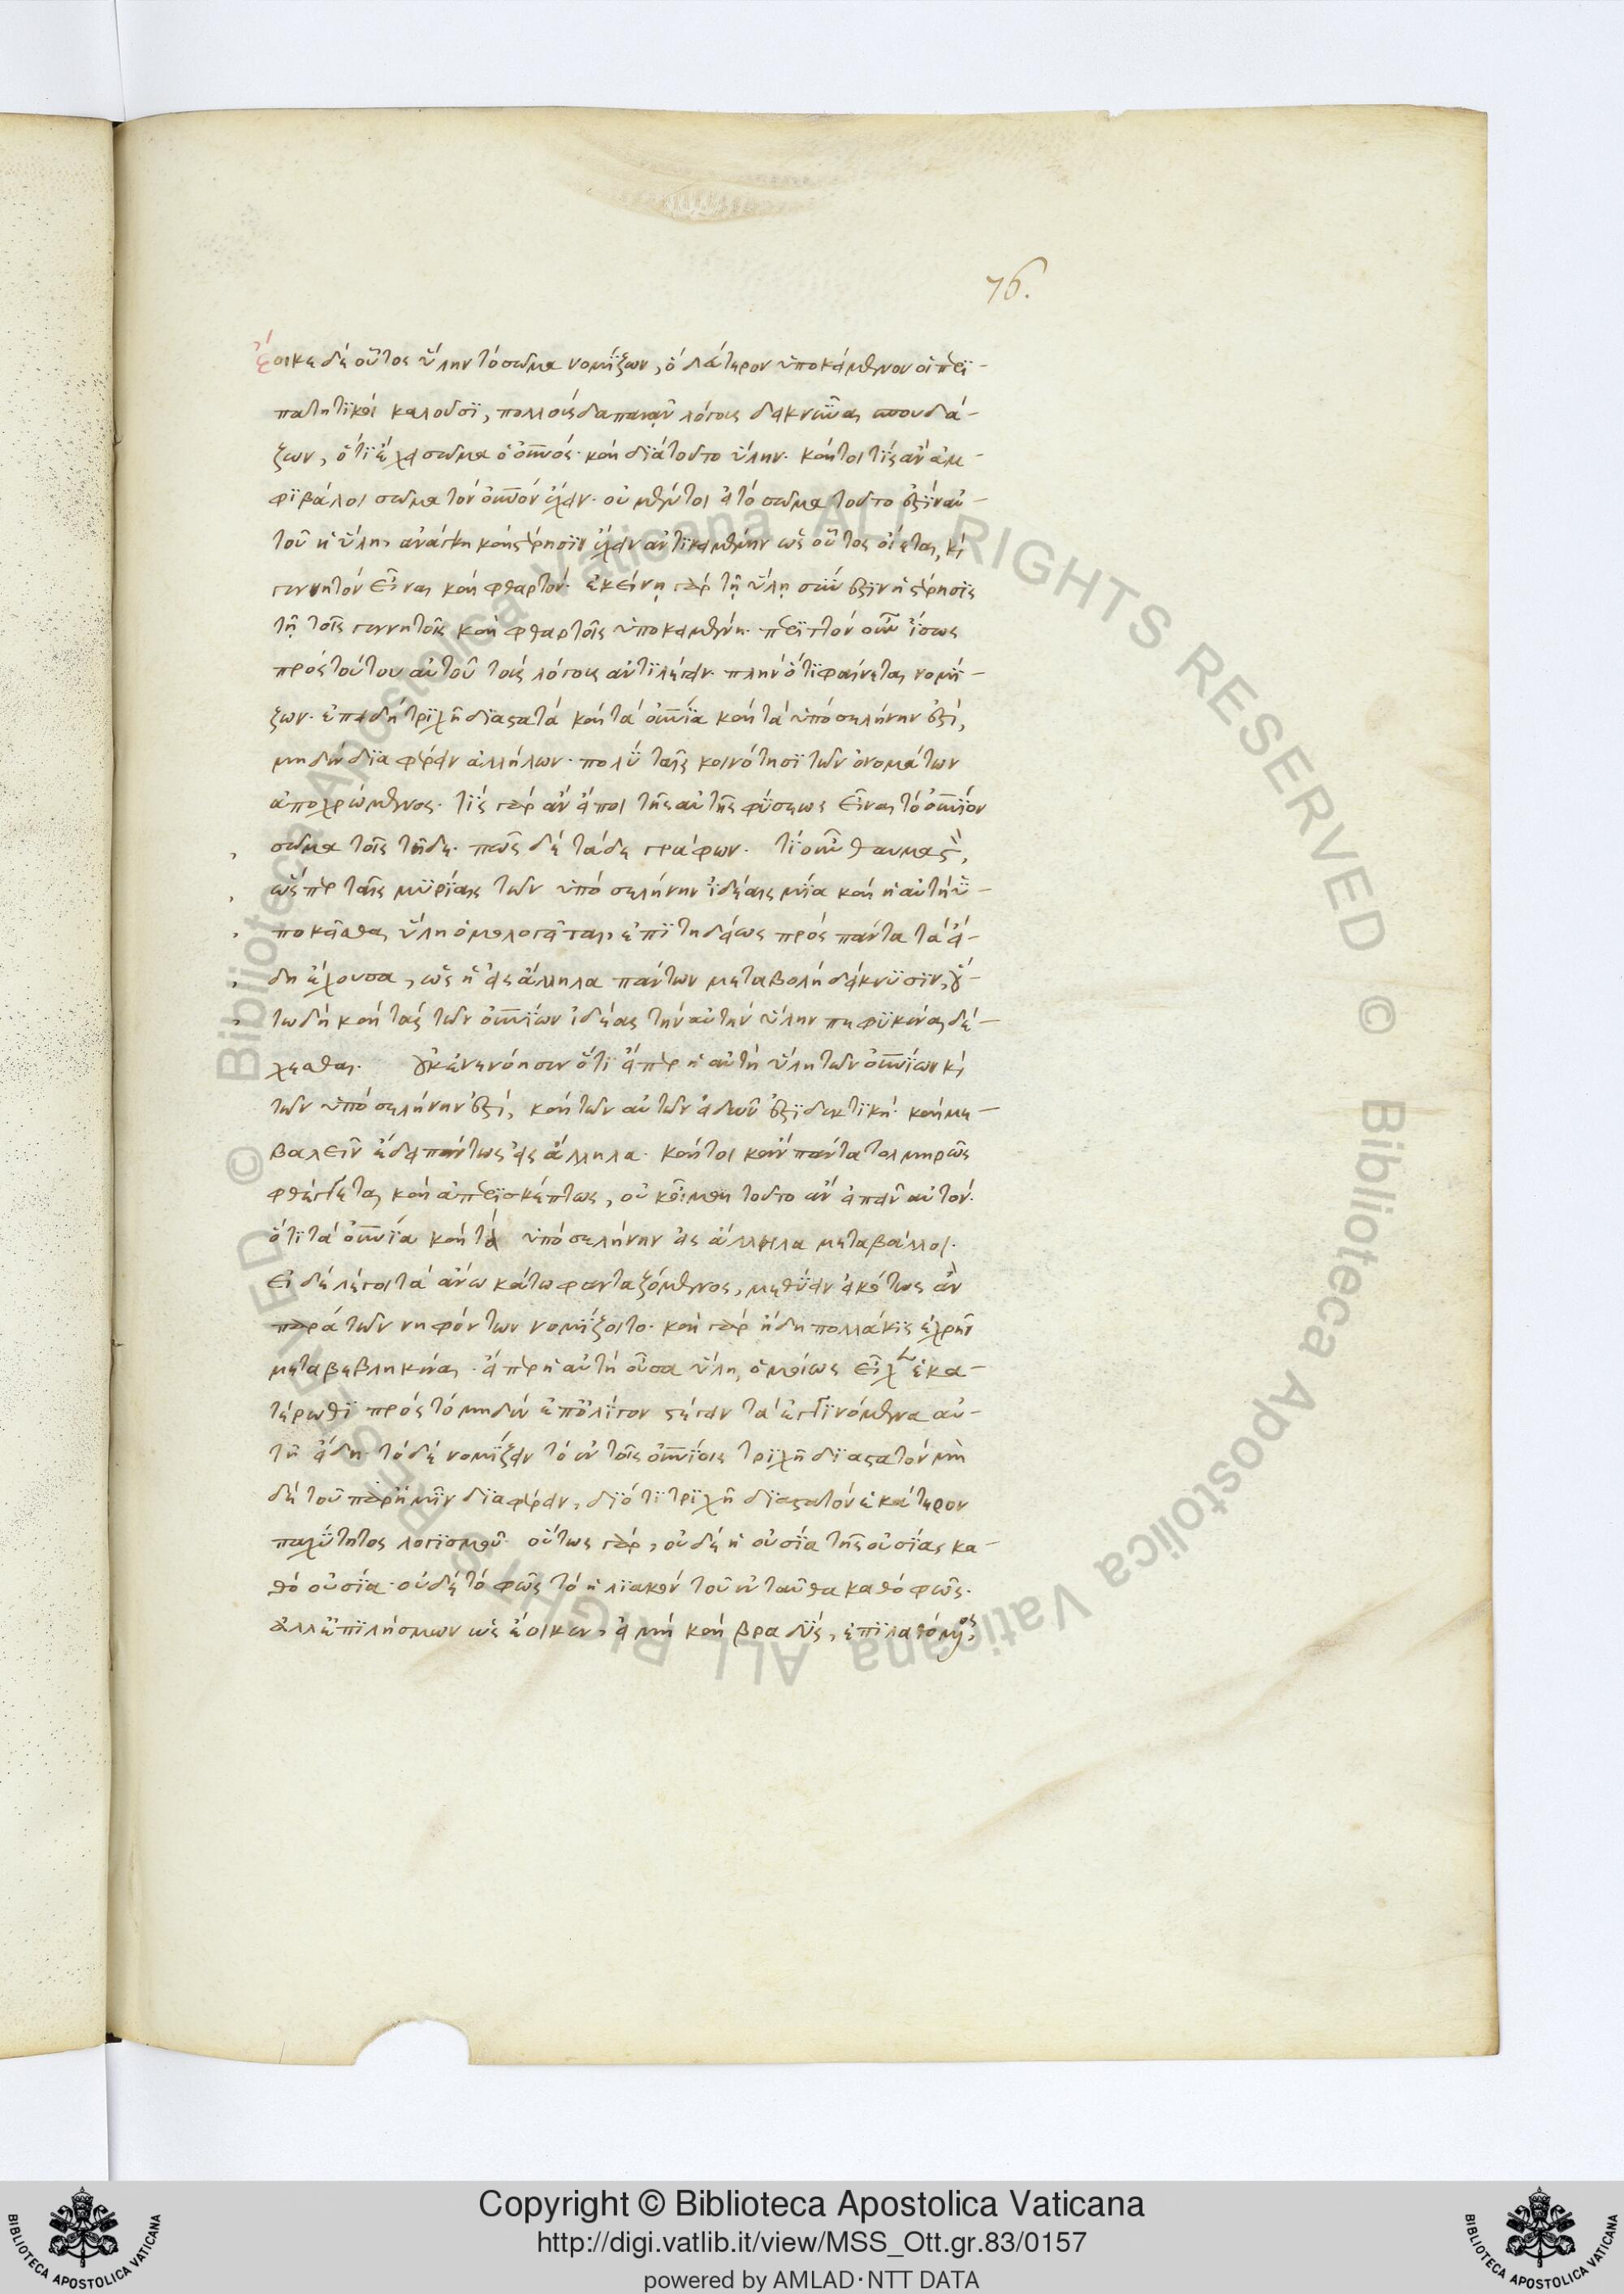 76.
ἔοικε δὲ οὗτος ὕλην τὸ σῶμα νομίζων, ὃ δεύτερον ὑποκείμενον οἱ περι-
πατητικοὶ καλοῦσι, πολλοὺς δαπανᾶν λόγους δεικνύναι σπουδά-
ζων, ὅτι ἔχει σῶμα ὁ οὐρανός· καὶ διὰ τοῦτο ὕλην. καίτοι τίς ἂν ἀμ-
φιβάλοι σῶμα τὸν οὐρανὸν ἔχειν. οὐ μέντοι εἰ τὸ σῶμα τοῦτο ἐστὶν αὐ-
τοῦ ἡ ὕλη, ἀνάγκη καὶ στέρησιν ἔχειν ἀντικειμένην ὡς οὗτος οἴεται, καὶ
γεννητὸν εἶναι καὶ φθαρτόν. ἐκείνῃ γὰρ τῇ ὕλῃ σύνεστιν ἡ στέρησις
τῇ τοῖς γεννητοῖς καὶ φθαρτοῖς ὑποκειμένῃ. περιττὸν οὖν ἴσως
πρὸς τούτου αὐτοῦ τοὺς λόγους ἀντιλέγειν. πλὴν ὅτι φαίνεται νομί-
ζων. ἐπειδὴ τριχῇ διαστατὰ καὶ τὰ οὐράνια καὶ τὰ ὑπὸ σελήνην ἐστί,
μηδὲν διαφέρειν ἀλλήλων. πολὺ ταῖς κοινότησι τῶν ὀνομάτων
ἀποχρώμενος. τίς γὰρ ἂν εἴποι τῆς αὐτῆς φύσεως εἶναι τὸ οὐράνιον
σῶμα τοῖς τῇδε. πῶς δὲ τάδε γράφων. τί οὖν θαυμαστὸν,
ὥσπερ ταῖς μυρίαις τῶν ὑπὸ σελήνην ἰδέαις μία καὶ ἡ αὐτὴ ὑ-
ποκεῖσθαι ὕλη ὁμολογεῖται, ἐπιτηδείως πρὸς πάντα τὰ εἴ-
δη ἔχουσα, ὡς ἡ εἰς ἄλληλα πάντων μεταβολὴ δείκνυσιν, οὕ-
τω δὴ καὶ τὰς τῶν οὐρανίων ἰδέας τὴν αὐτὴν ὕλην πεφυκέναι δέ-
χεσθαι. οὐκ ἐνενόησεν ὅτι εἴπερ ἡ αὐτὴ ὕλη τῶν οὐρανίων καὶ
τῶν ὑπὸ σελήνην ἐστί, καὶ τῶν αὐτῶν εἰδῶν ἐστὶ δεκτικὴ. καὶ με-
βαλεῖν ἔδει πάντως εἰς ἄλληλα. καίτοι κἂν πάντα τολμηρῶς
φθέγγεται καὶ ἀπερισκέπτως, οὐκ οἶμαι τοῦτο ἂν εἰπεῖν αὐτόν.
ὅτι τὰ οὐράνια καὶ τὰ ὑπὸ σελήνην εἰς ἄλληλα μεταβάλλοι.
εἰ δὲ λέγοι τὰ ἄνω κάτω φανταζόμενος, μεθύειν εἰκότως ἂν
παρὰ τῶν νηφόντων νομίζοιτο. καὶ γὰρ ἤδη πολλάκις ἐχρῆν
μεταβεβληκέναι. εἴπερ ἡ αὐτὴ οὖσα ὕλη, ὁμοίως εἶχεν ἑκα-
τέρωθι πρὸς τὸ μηδὲν ἐπ' ὀλίγον στέγειν τὰ ἐγγινόμενα αὐ-
τῇ εἴδη. τὸ δὲ νομίζειν τὸ ἐν τοῖς οὐρανίοις τριχῇ διαστατὸν μη
δὲ τοῦ παρ' ἡμῖν διαφέρειν, διότι τριχῇ διαστατὸν ἑκάτερον
παχύτητος λογισμοῦ. οὕτως γὰρ, οὐδὲ ἡ οὐσία τῆς οὐσίας κα-
θὸ οὐσία. οὐδὲ τὸ φῶς τὸ ἡλιακὸν τοῦ ἐνταῦθα καθὸ φῶς.
ἀλλ' ἐπιλήσμων ὡς ἔοικεν, εἰ μὴ καὶ βραδύς, ἐπιλαθόμενος,
Copyright © Biblioteca Apostolica Vaticana
http://digi.vatlib.it/view/MSS_Ott.gr.83/0157
powered by AMLAD·NTT DATA